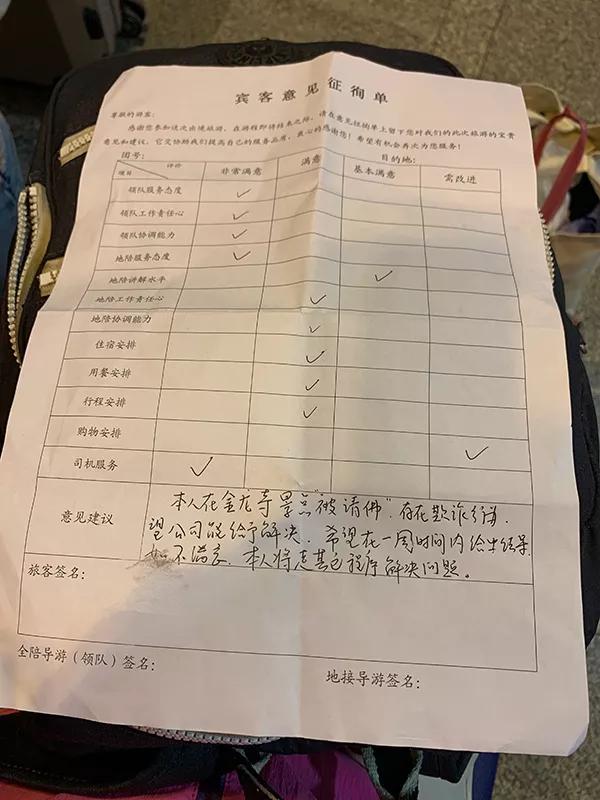 宾客意见征徇单
尊敬的游客:
感谢您参加这次出境旅游,在游程即将结束之际,请在意见征徇单上留下您对我们的此次旅游的宝贵
意见和建议,它交协助我们提高自己的服务品质,衷心的感谢您!希望有机会再次为您服务!
团号: 目的地:
评价
项目 非常满意 满意 基本满意 需改进
领队服务态度 ✓
领队工作责任心 ✓
领队协调能力 ✓
地陪服务态度 ✓
地陪讲解水平 ✓
地陪工作责任心 ✓
地陪协调能力 ✓
住宿安排 ✓
用餐安排 ✓
行程安排 ✓
购物安排 ✓
司机服务 ✓
意见建议
本人在金龙寺景点"被请佛".存在欺诈行为.
望公司能给予解决.希望在一周时间内给出结果
不满意.本人将走其它程序解决问题。
旅客签名:
全陪导游(领队)签名:
地接导游签名: